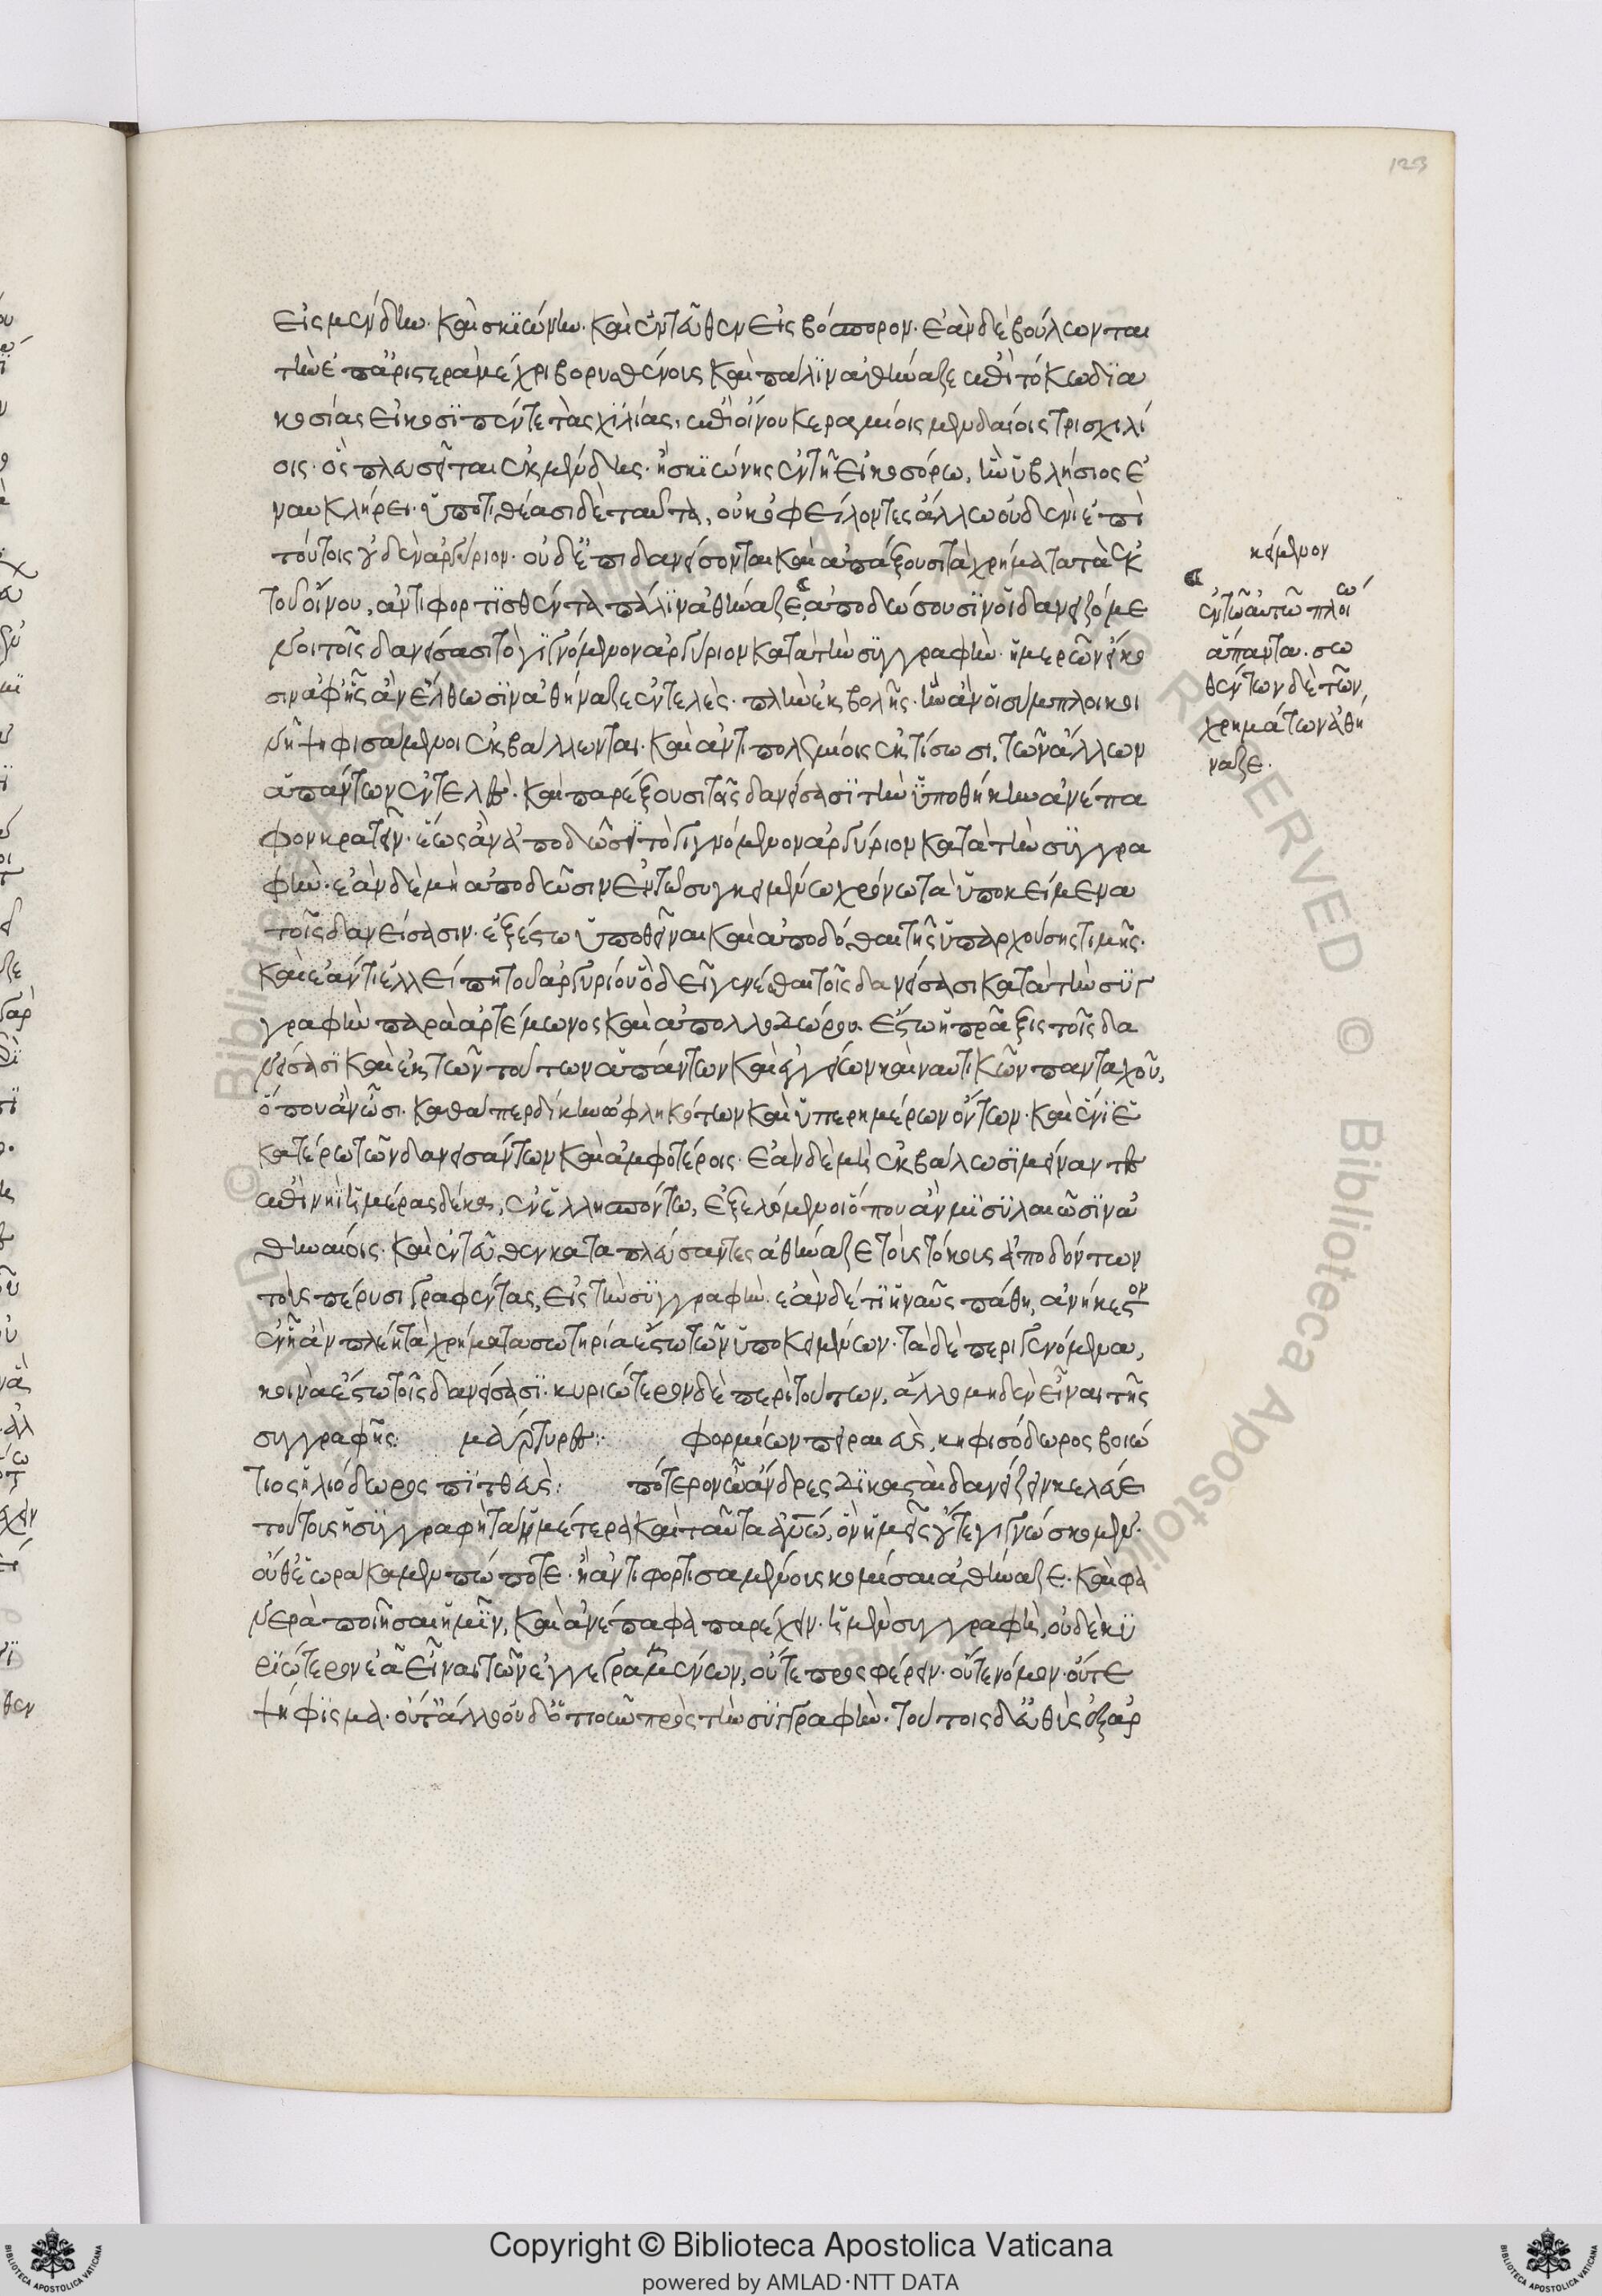 123
εἰς μένδην· καὶ σκϊώνην· καὶ ἐντεῦθεν εἰς βόσπορον· ἐὰν δὲ βούλωνται
τὴν ἐπ' ἀριστερὰ μέχρι βορυσθένους καὶ πάλϊν ἀθήναζε ἐπὶ τόκω δϊα
κοσίας εἰκοσϊπέντε τὰς χϊλίας, ἐπὶ οἴνου κεραμίοις μενδαίοις τρισχιλί
οις· ὃς πλευσεῖται ἐκ μένδης· ἢ σκϊώνης ἐν τῆ εἰκοσόρω, ἣν ὑβλήσιος ἐ
ναυκλήρει· ὑποτιθέασι δὲ ταῦτα, οὐκ ὀφείλοντες ἄλλω οὐδενὶ ἐπὶ
τούτοις οὐδὲν ἀργύριον· οὐδ' ἐπιδανείσονται καὶ ἀπάξουσι τὰ χρήματα τὰ ἐκ
τοῦ οἴνου, ἀντιφορτϊσθέντα πάλϊν ἀθήναζε, ἀποδώσουσϊν οἱ δανειζόμε
νοι τοῖς δανείσασι τὸ γϊγνόμενον ἀργύριον κατὰ τὴν σϋγγραφὴν· ἡμερῶν εἴκο
σιν ἀφ' ἧς ἂν ἔλθωσϊν ἀθήναζε ἐντελὲς· πλὴν ἐκβολῆς· ἣν ἂν οἱ σύμπλοι κοι
νῆ ψηφισάμενοι ἐκβάλλωνται· καὶ ἄν τι πολεμίοις ἐκτίσωσι, τῶν ἄλλων
ἁπάντων ἐντελὲς· καὶ παρέξουσι τοῖς δανείσασϊ τὴν ὑποθήκην ἀνέπα
φον κρατεῖν· ἕως ἂν ἀποδῶσϊ τὸ γιγνόμενον ἀργύριον κατὰ τὴν σϋγγρα
φὴν· ἐὰν δὲ μὴ ἀποδῶσιν ἐν τῶ συγκειμένω χρόνω τὰ ὑποκείμενα
τοῖς δανείσασιν· ἐξέστω ὑποθεῖναι καὶ ἀποδόσθαι τῆς ὑπαρχούσης τιμῆς·
καὶ ἐάν τι ἐλλείπη τοῦ ἀργυρίου ὃ δεῖ γενέσθαι τοῖς δανείσασι κατὰ τὴν σϋγ
γραφὴν παρὰ ἀρτέμωνος καὶ ἀπολλοδώρου· ἔστω ἡ πρᾶξις τοῖς δα
νείσασϊ καὶ ἐκ τῶν τούτων ἁπάντων καὶ ἐγγείων καὶ ναυτικῶν πανταχοῦ,
ὅπου ἂν ὦσι· καθάπερ δίκην ὠφληκότων καὶ ὑπερημέρων ὄντων· καὶ ἑνϊ ἑ
κατέρω τῶν δανεισάντων καὶ ἀμφοτέροις· ἐὰν δὲ μὴ ἐκβάλωσϊ μείναντες
ἐπὶ κυνὶ ἡμέρας δέκα, ἐν ἑλλησπόντω, ἐξελόμενοι ὅπου ἂν μὴ σῦλαι ὦσϊν ἀ
θηναίοις· καὶ ἐντεῦθεν καταπλεύσαντες ἀθήναζε τοὺς τόκους ἀποδόντων
τοὺς πέρυσι γραφέντας, εἰς τὴν σϋγγραφὴν· ἐὰν δέ τϊ ἡ ναῦς πάθη, ἀνήκεστον
ἐν ἧ ἂν πλέη τὰ χρήματα σωτηρία ἔστω τῶν ὑποκειμένων· τὰ δὲ περιγενόμενα,
κοινὰ ἔστω τοῖς δανείσασϊ· κυριώτερον δὲ περὶ τούτων, ἄλλο μηδὲν εἶναι τῆς
συγγραφῆς: μάρτυρες: φορμίων πειραιεὺς, κηφισόδωρος βοιώ
τιος ἡλιόδωρος πϊτθεὺς: πότερον ὦ ἄνδρες δϊκασταὶ δανείζειν κελεύει
τούτοις ἡ σϋγγραφὴ τὰ ἡμέτερα καὶ ταῦτα αὐτῶ, ὃν ἡμεῖς οὔτε γιγνώσκομεν·
οὔθ' ἑωράκαμεν πώποτε· ἢ ἀντιφορτισαμένους κομίσαι ἀθήναζε· καὶ φα
νερὰ ποιῆσαι ἡμῖν, καὶ ἀνέπαφα παρέχειν· ἡ μὲν συγγραφὴ, οὐδὲν κϋ
ρϊώτερον ἐᾶ εἶναι τῶν ἐγγεγραμμένων, οὔτε προσφέρειν· οὔτε νόμον· οὔτε
ψήφϊσμα· οὔτ' ἄλλ' οὐδ' ὁτιοῦν πρὸς τὴν σϋγγραφὴν· τούτοις δ' εὐθὺς ἐξ ἀρ
κείμενον
ἐν τῶ αὐτῶ πλοίω
ἅπαντα. σω
θέντων δὲ τῶν
χρημάτων ἀθή
ναζε.
Copyright © Biblioteca Apostolica Vaticana
powered by AMLAD·NTT DATA